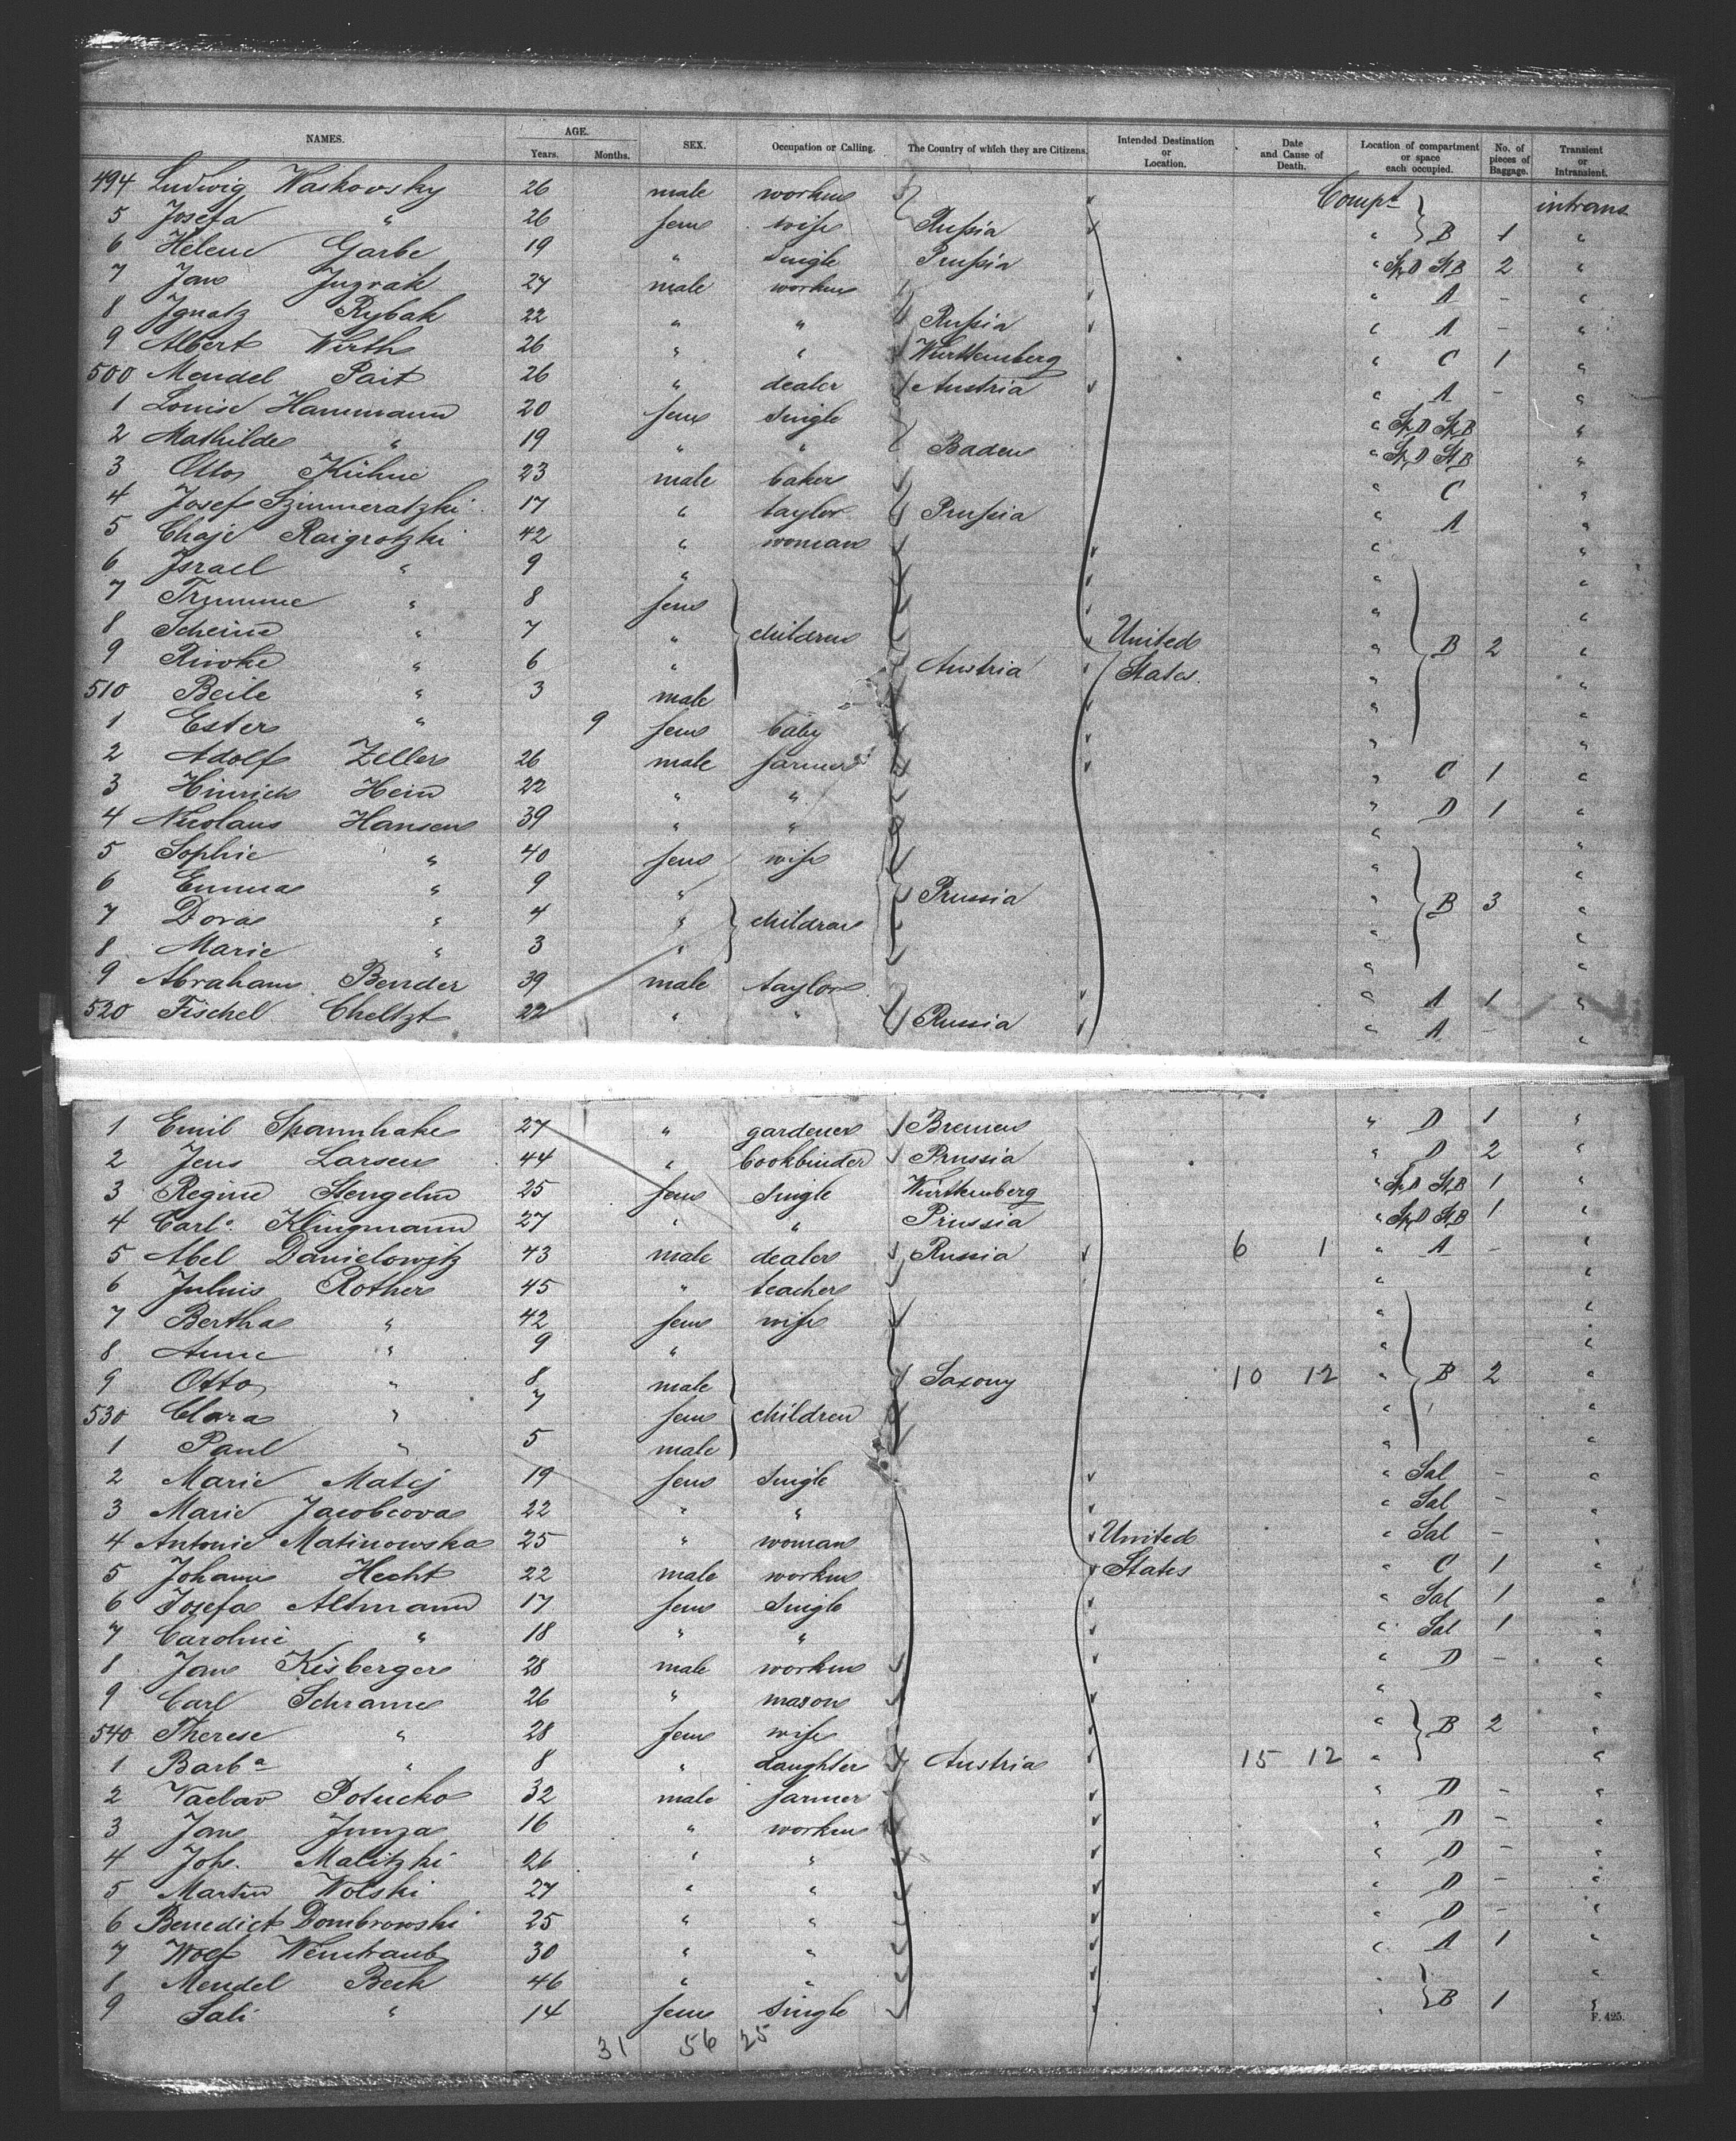 NAMES. AGE. Years. Months. SEX. Occupation or Calling. The Country of which they are Citizens. Intended Destination or Location. Date and Cause of Death. Location of compartment or space each occupied. No. of pieces of Baggage. Transient or Intransient.
494 Ludwig Waskovsky 26 male workm Compt intrans
5 Josefa " 26 fem wife Russia " B 1 "
6 Helene Garbe 19 " Single Prussia " 2 "
7 Jan Jugrak 27 male workm " A - "
8 Ignatz Rybak 22 " " Russia " A - "
9 Albert Wirth 26 " " Württemberg " C 1 "
500 Mendel Pait 26 " dealer Austria " A - "
1 Louise Hammann 20 fem Single "
2 Mathilde " 19 " " Baden "
3 Otto Kühne 23 male baker " C "
4 Josef Szimmeratzki 17 " taylor Prussia " A "
5 Chaje Raigrotzki 42 " woman " "
6 Israel " 9 " " "
7 Trumme " 8 fem " "
8 Scheine " 7 " children United " B 2 "
9 Riwke " 6 " Austria States. " "
510 Beile " 3 male " "
1 Ester " 9 fem baby " "
2 Adolf Zeller 26 male farmer " C 1 "
3 Hinrich Hein 22 " " " D 1 "
4 Nicolaus Hansen 39 " " " "
5 Sophie " 40 fem wife " "
6 Emma " 9 " Prussia " B 3 "
7 Dora " 4 " children " "
8 Marie " 3 " "
9 Abraham Bender 39 male taylor " A 1 "
520 Fischel Cheltzt 22 " " Russia " A - "
1 Emil Spannhake 27 " gardener Bremen " D 1 "
2 Jens Larsen 44 " bookbinder Prussia " D 2 "
3 Regine Stengelin 25 fem Single Württemberg " 1 "
4 Carle Klingmann 27 " " Prussia " 1 "
5 Abel Danielowitz 43 male dealer Russia 6 1 " A - "
6 Julius Rother 45 " teacher " "
7 Bertha " 42 fem wife " "
8 Anne " 9 " " "
9 Otto " 8 male Saxony 10 12 " B 2 "
530 Clara " 7 fem children " "
1 Paul " 5 male " "
2 Marie Matej 19 fem Single " Sal - "
3 Marie Jacobcova 22 " " " Sal - "
4 Antonie Matinowska 25 " woman United " Sal - "
5 Johann Hecht 22 male workm States " C 1 "
6 Josefa Altmann 17 fem Single " Sal 1 "
7 Caroline " 18 " " " Sal 1 "
8 Jan Kisberger 28 male workm " D - "
9 Carl Schrame 26 " mason " "
540 Therese " 28 fem wife " B 2 "
1 Barba " 8 " daughter Austria 15 12 " "
2 Vaclav Potucko 32 male farmer " D - "
3 Jan Junza 16 " workm " D - "
4 Joh. Malitzki 26 " " " D - "
5 Martin Wolski 27 " " " D - "
6 Benedict Dombrowski 25 " " " D - "
7 Wolf Weintraub 30 " " " A 1 "
8 Mendel Beck 46 " " " "
9 Sali " 14 fem Single " B 1 "
F. 425.
31 56 25